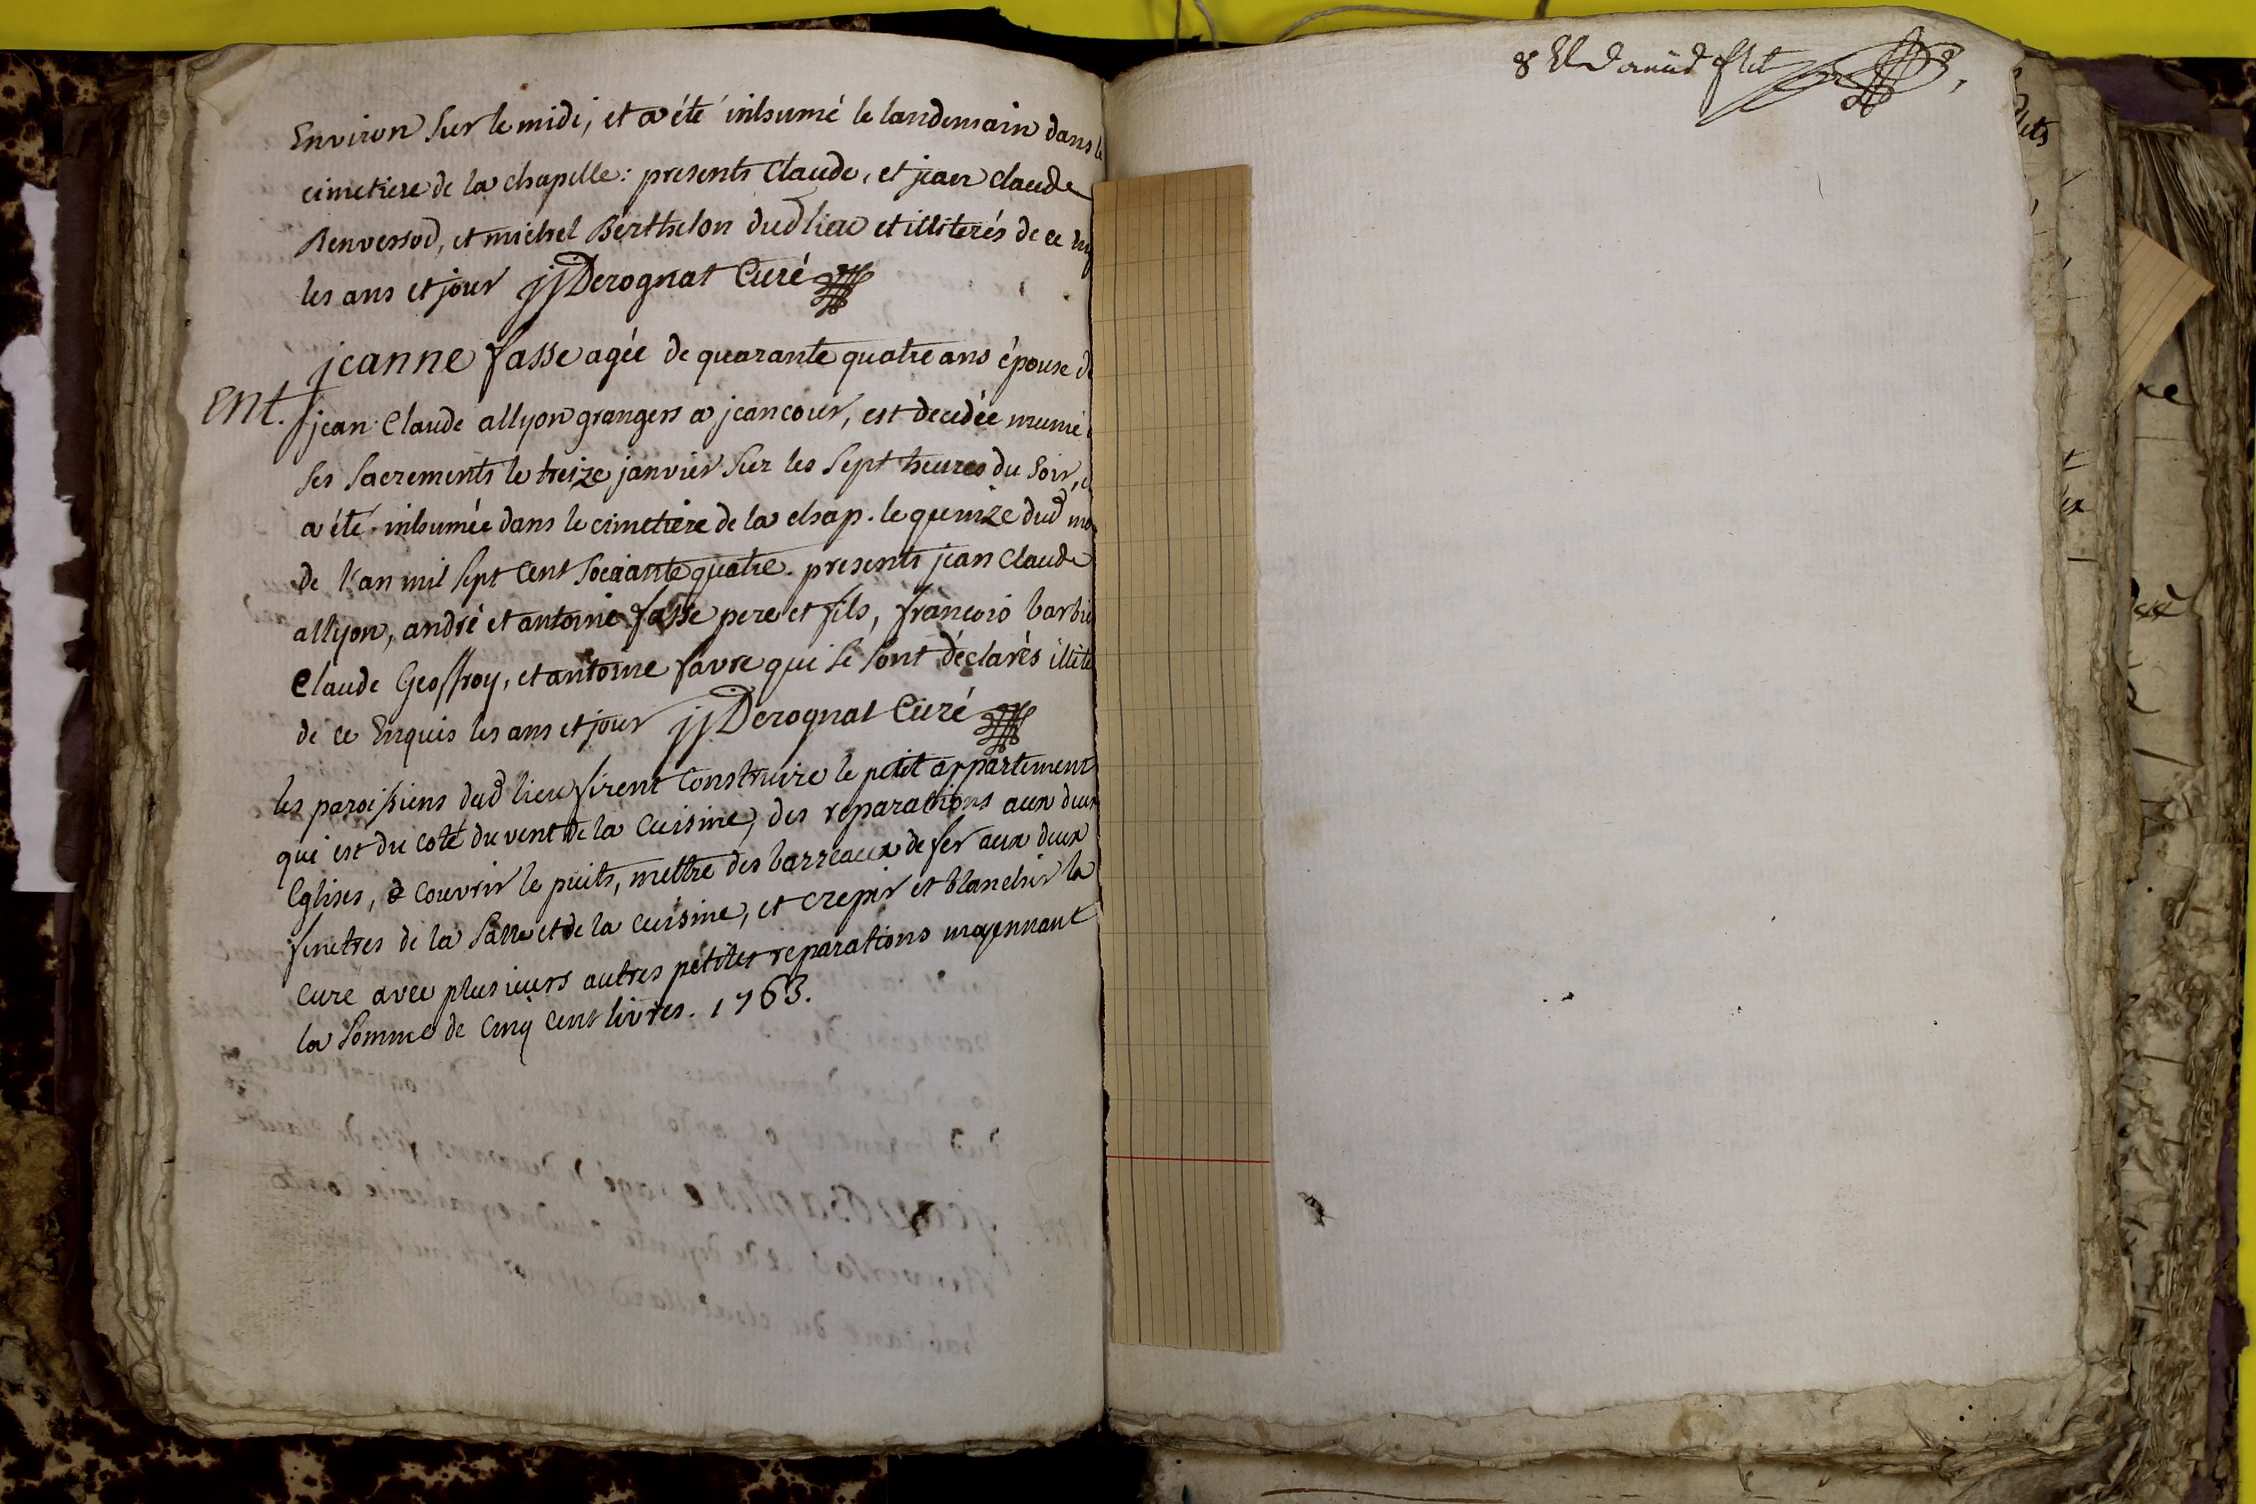 Environ sur le midi, et a été inhumé le landemain dans le
cimetiere de la chapelle: presents Claude, et jean claude
Renversod, et michel Berthelon dud lieu et illiterés de ce
les ans et jour jj Derognat Curé
jeanne fasse agée de quarante quatre ans épouse de
Ent. jean Claude allyon grangers a jeancour, est decedée munie
ses sacrements le treize janvier sur les sept heures du soir,
a été inhumée dans le cimetiere de la chap. le quinze dud
de l'an mil sept cent soixante quatre. presents jean claude
allyon, andré et antoine fasse pere et fils, francois barbi
Claude Geoffroy, et antoine favre qui se sont déclarés illite
de ce Enquis les ans et jour jj Derognat Curé
les paroissiens dud lieu firent Construire le petit appartement
qui est du coté du vent de la Cuisine, des reparations aux deux
Eglises, couvrir le puits, mettre des barreaux de fer aux deux
finetres de la Salle et de la cuisine, et crepir et blanchir la
cure avec plusieurs autres petites reparations moyennant
la Somme de Cinq Cent livres. 1763.